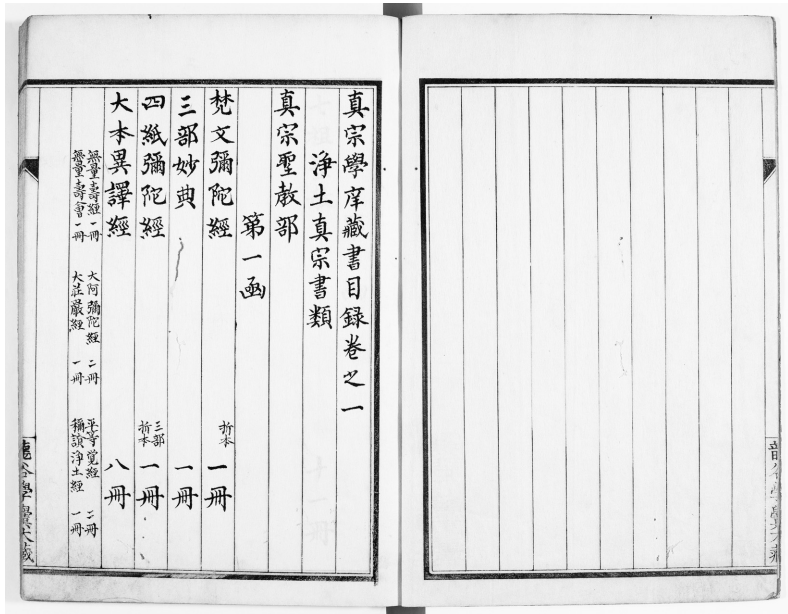 真宗學庠藏書目録卷之一
淨土真宗書類
真宗聖教部
第一函
梵文彌陀經 折本 一冊
三部妙典 一冊
四紙彌陀經 三部 折本 一冊
大本異譯經 八冊
無量壽經 一冊 大阿彌陀經 二冊 平等覺經 二冊
無量壽會 一冊 大莊嚴經 一冊 稱讃淨土經 一冊
龍谷學黌大藏
龍谷學黌大藏